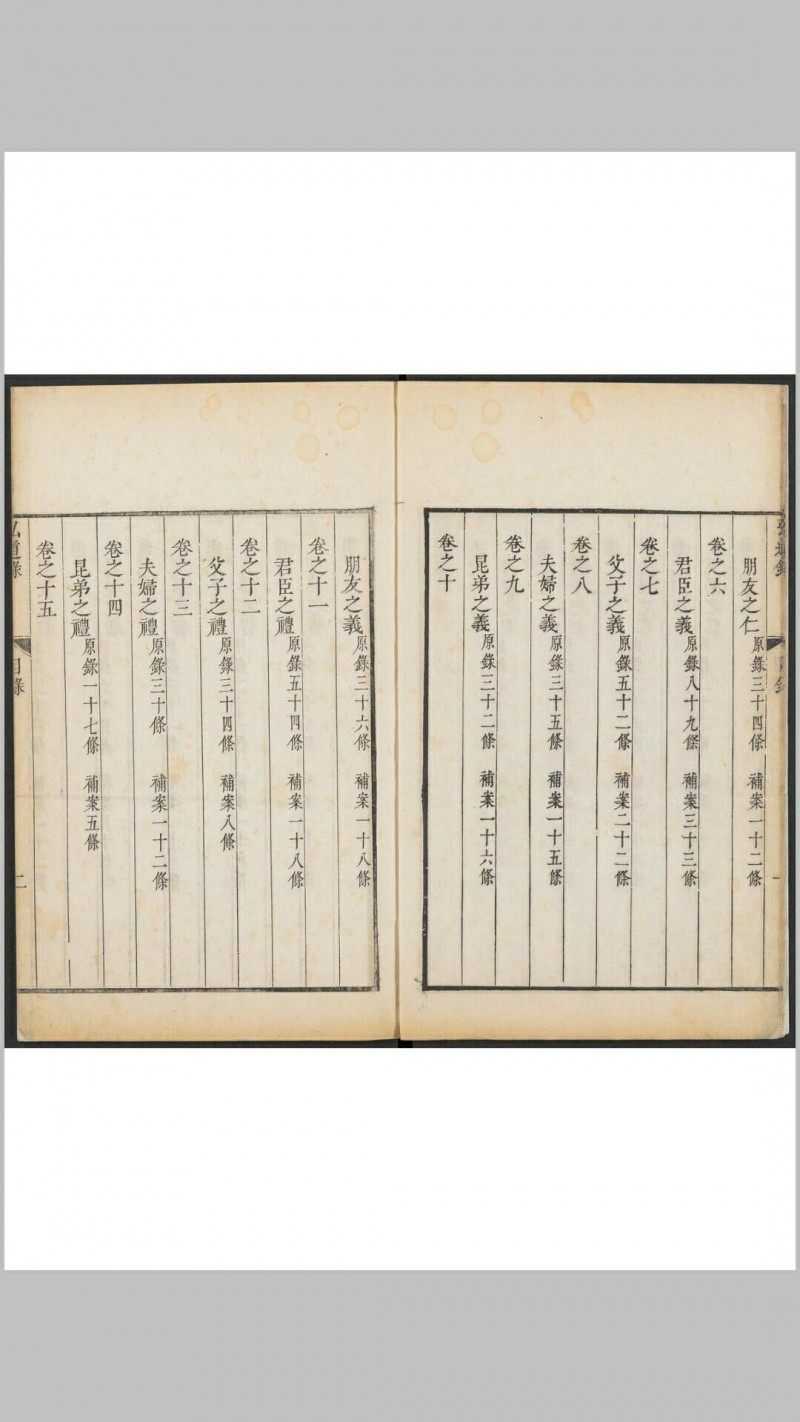 朋友之仁原錄三十四條 補案一十二條
卷之六
君臣之義原錄八十九條 補案三十三條
卷之七
父子之義原錄五十二條 補案二十二條
卷之八
夫婦之義原錄三十五條 補案一十五條
卷之九
昆弟之義原錄三十二條 補案一十六條
卷之十
朋友之義原錄三十六條 補案一十八條
卷之十一
君臣之禮原錄五十四條 補案一十八條
卷之十二
父子之禮原錄三十四條 補案八條
卷之十三
夫婦之禮原錄三十條 補案一十二條
卷之十四
昆弟之禮原錄一十七條 補案五條
卷之十五
弘道錄 目錄 二